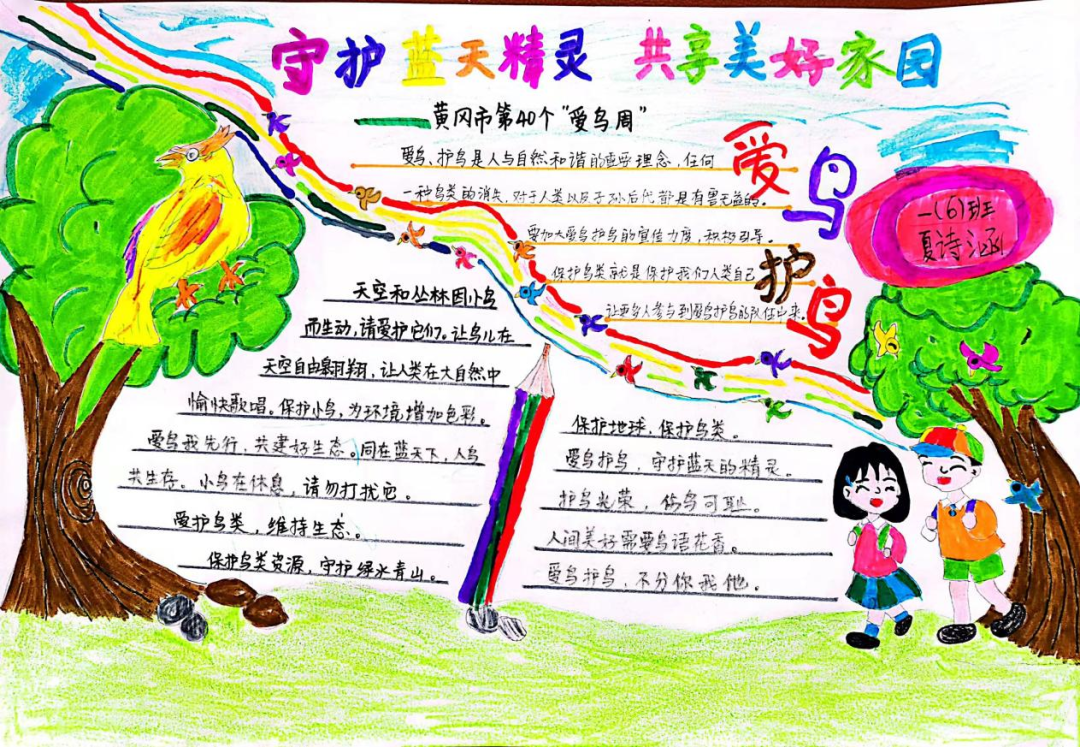 守护蓝天精灵 共享美好家园
黄冈市第40个“爱鸟周”
爱鸟、护鸟是人与自然和谐的重要理念，任何
一种鸟类的消失，对于人类以及子孙后代都是有害无益的。
要加大爱鸟护鸟的宣传力度，积极引导。
保护鸟类就是保护我们人类自己
让更多人参与到爱鸟护鸟的队伍中来。
爱鸟
护鸟
一(6)班
夏诗涵
天空和丛林因小鸟
而生动，请爱护它们。让鸟儿在
天空自由翱翔，让人类在大自然中
愉快歌唱。保护小鸟，为环境增加色彩。
爱鸟我先行，共建好生态。同在蓝天下，人鸟
共生存。小鸟在休息，请勿打扰它。
爱护鸟类，维持生态。
保护鸟类资源，守护绿水青山。
保护地球，保护鸟类。
爱鸟护鸟，守护蓝天的精灵。
护鸟光荣，伤鸟可耻。
人间美好需要鸟语花香。
爱鸟护鸟，不分你我他。